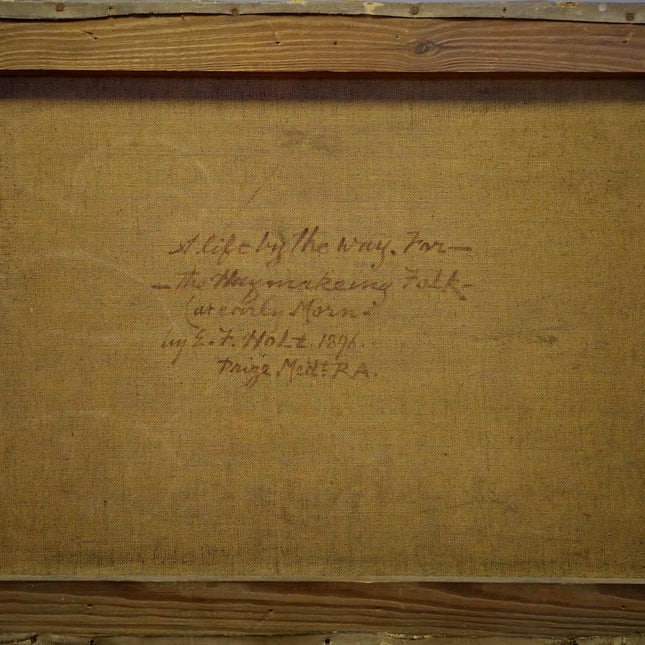 A lift by the way. For—
— the Haymakeing Folk—
(at early Morn.
by E. F. Holt. 1896.
Prize Medt RA.